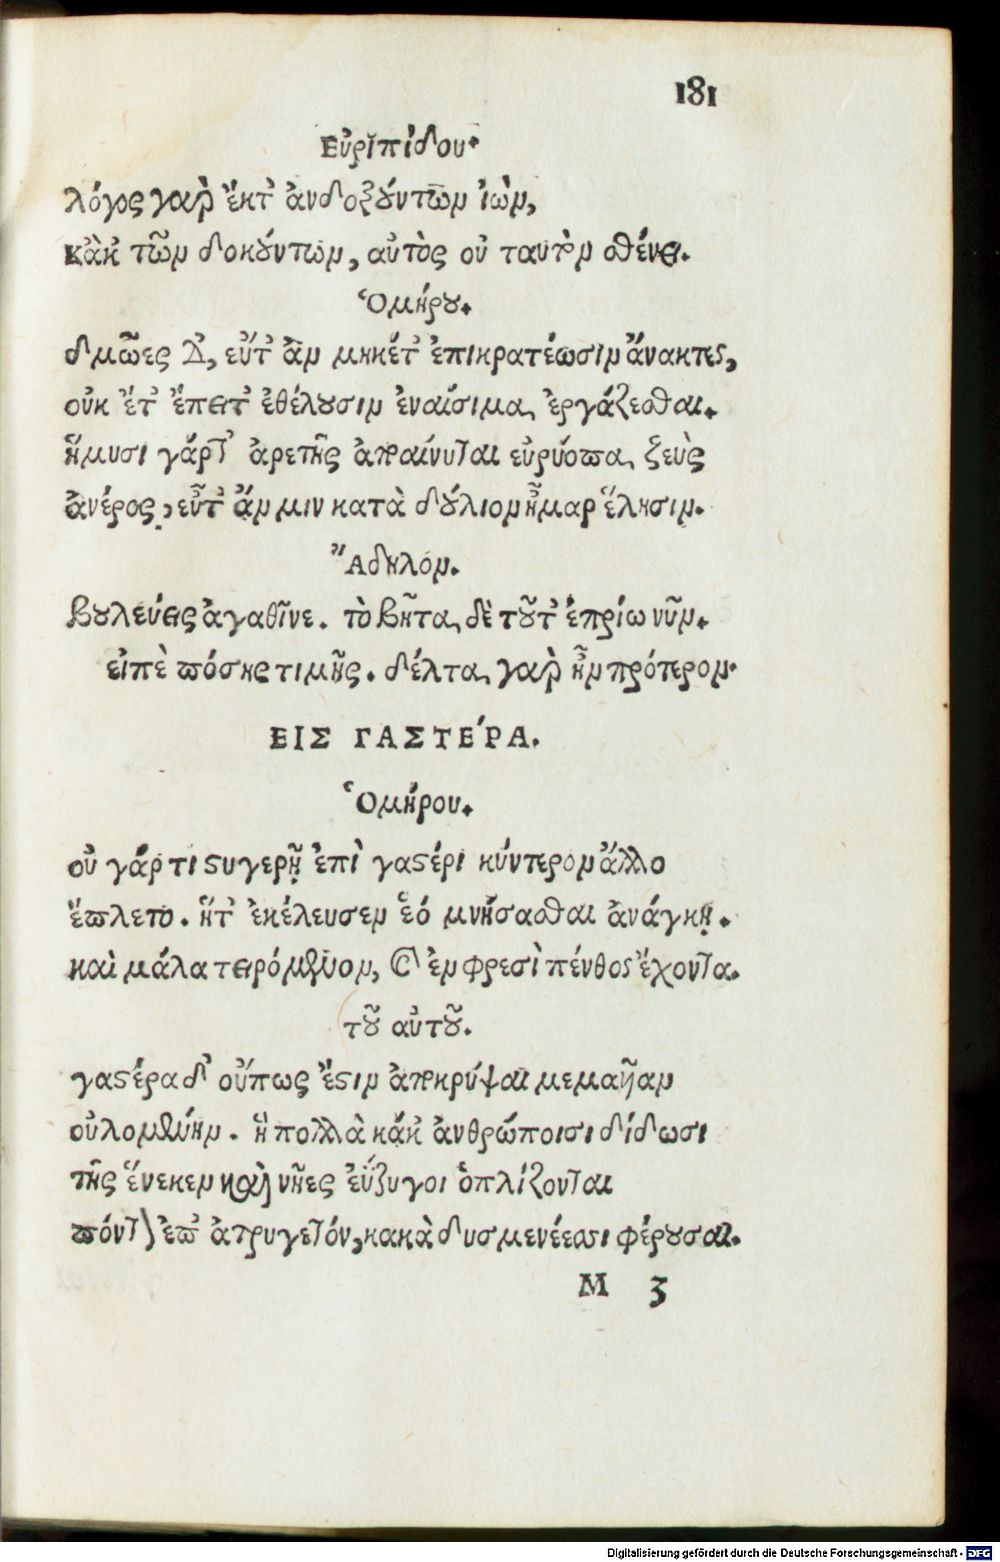 181
Εὐριπίδου.
λόγος γὰρ ἔκτ᾽ ἀνδοξούντων ἰὼν,
κἀκ τῶν δοκούντων, αὐτὸς οὐ ταυτὸν σθένει.
Ὁμήρου.
δμῶες δ᾽, εὖτ᾽ ἂν μηκέτ᾽ ἐπικρατέωσιν ἄνακτες,
οὐκ ἔτ᾽ ἔπειτ᾽ ἐθέλουσιν ἐναίσιμα ἐργάζεσθαι.
ἥμυσι γάρτ᾽ ἀρετῆς ἀποαίνυται εὐρύοπα ζεὺς
ἀνέρος, εὖτ᾽ ἄν μιν κατὰ δούλιον ἦμαρ ἕλησιν.
Ἄδηλον.
βουλεύεις ἀγαθῖνε. τὸ βῆτα δὲ τοῦτ᾽ ἐπρίω νῦν.
εἰπὲ πόσης τιμῆς. δέλτα γὰρ ἦν πρότερον.
ΕΙΣ ΓΑΣΤΕ´ΡΑ.
Ὁμήρου.
οὐ γάρ τι στυγερῇ ἐπὶ γαστέρι κύντερον ἄλλο
ἔπλετο. ἥτ᾽ ἐκέλευσεν ἕό μνήσασθαι ἀνάγκῃ.
καὶ μάλα τειρόμενον, καὶ ἐν φρεσὶ πένθος ἔχοντα.
τοῦ αὐτοῦ.
γαστέρα δ᾽ οὔπως ἔστιν ἀποκρύψαι μεμαυῖαν
οὐλομένην. ἣ πολλὰ κάκ᾽ ἀνθρώποισι δίδωσι
τῆς ἕνεκεν καὶ νῆες ἐΰζυγοι ὁπλίζονται
πόντον ἐπ᾽ ἀτρυγετόν, κακὰ δυσμενέεσσι φέρουσαι.
M 3
Digitalisierung gefördert durch die Deutsche Forschungsgemeinschaft - DFG